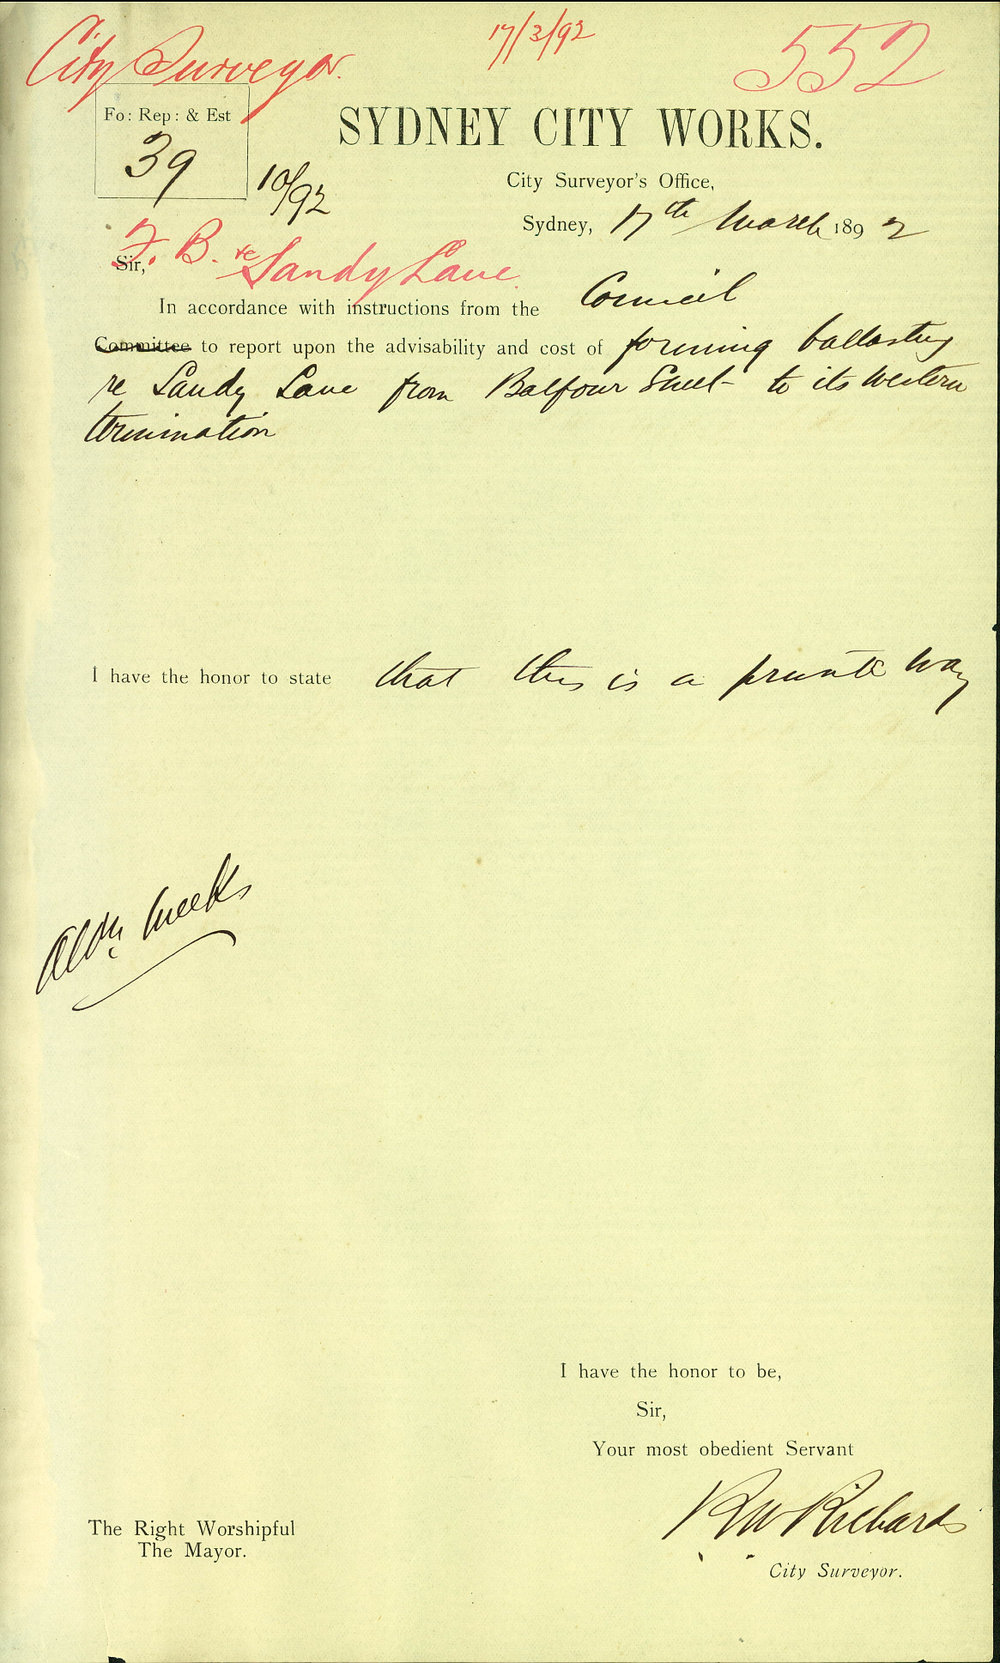 City Surveyor.
17/3/92
552
Fo: Rep: & Est
39
10/92
SYDNEY CITY WORKS.
City Surveyor's Office,
Sydney, 17th March 1892
F. B. re Sandy Lane.
Sir,
In accordance with instructions from the Council
Committee to report upon the advisability and cost of forming ballasting
re Sandy Lane from Balfour Street to its Western
termination
I have the honor to state that this is a private way
Aldn Meeks
I have the honor to be,
Sir,
Your most obedient Servant
R W Richards
City Surveyor.
The Right Worshipful
The Mayor.